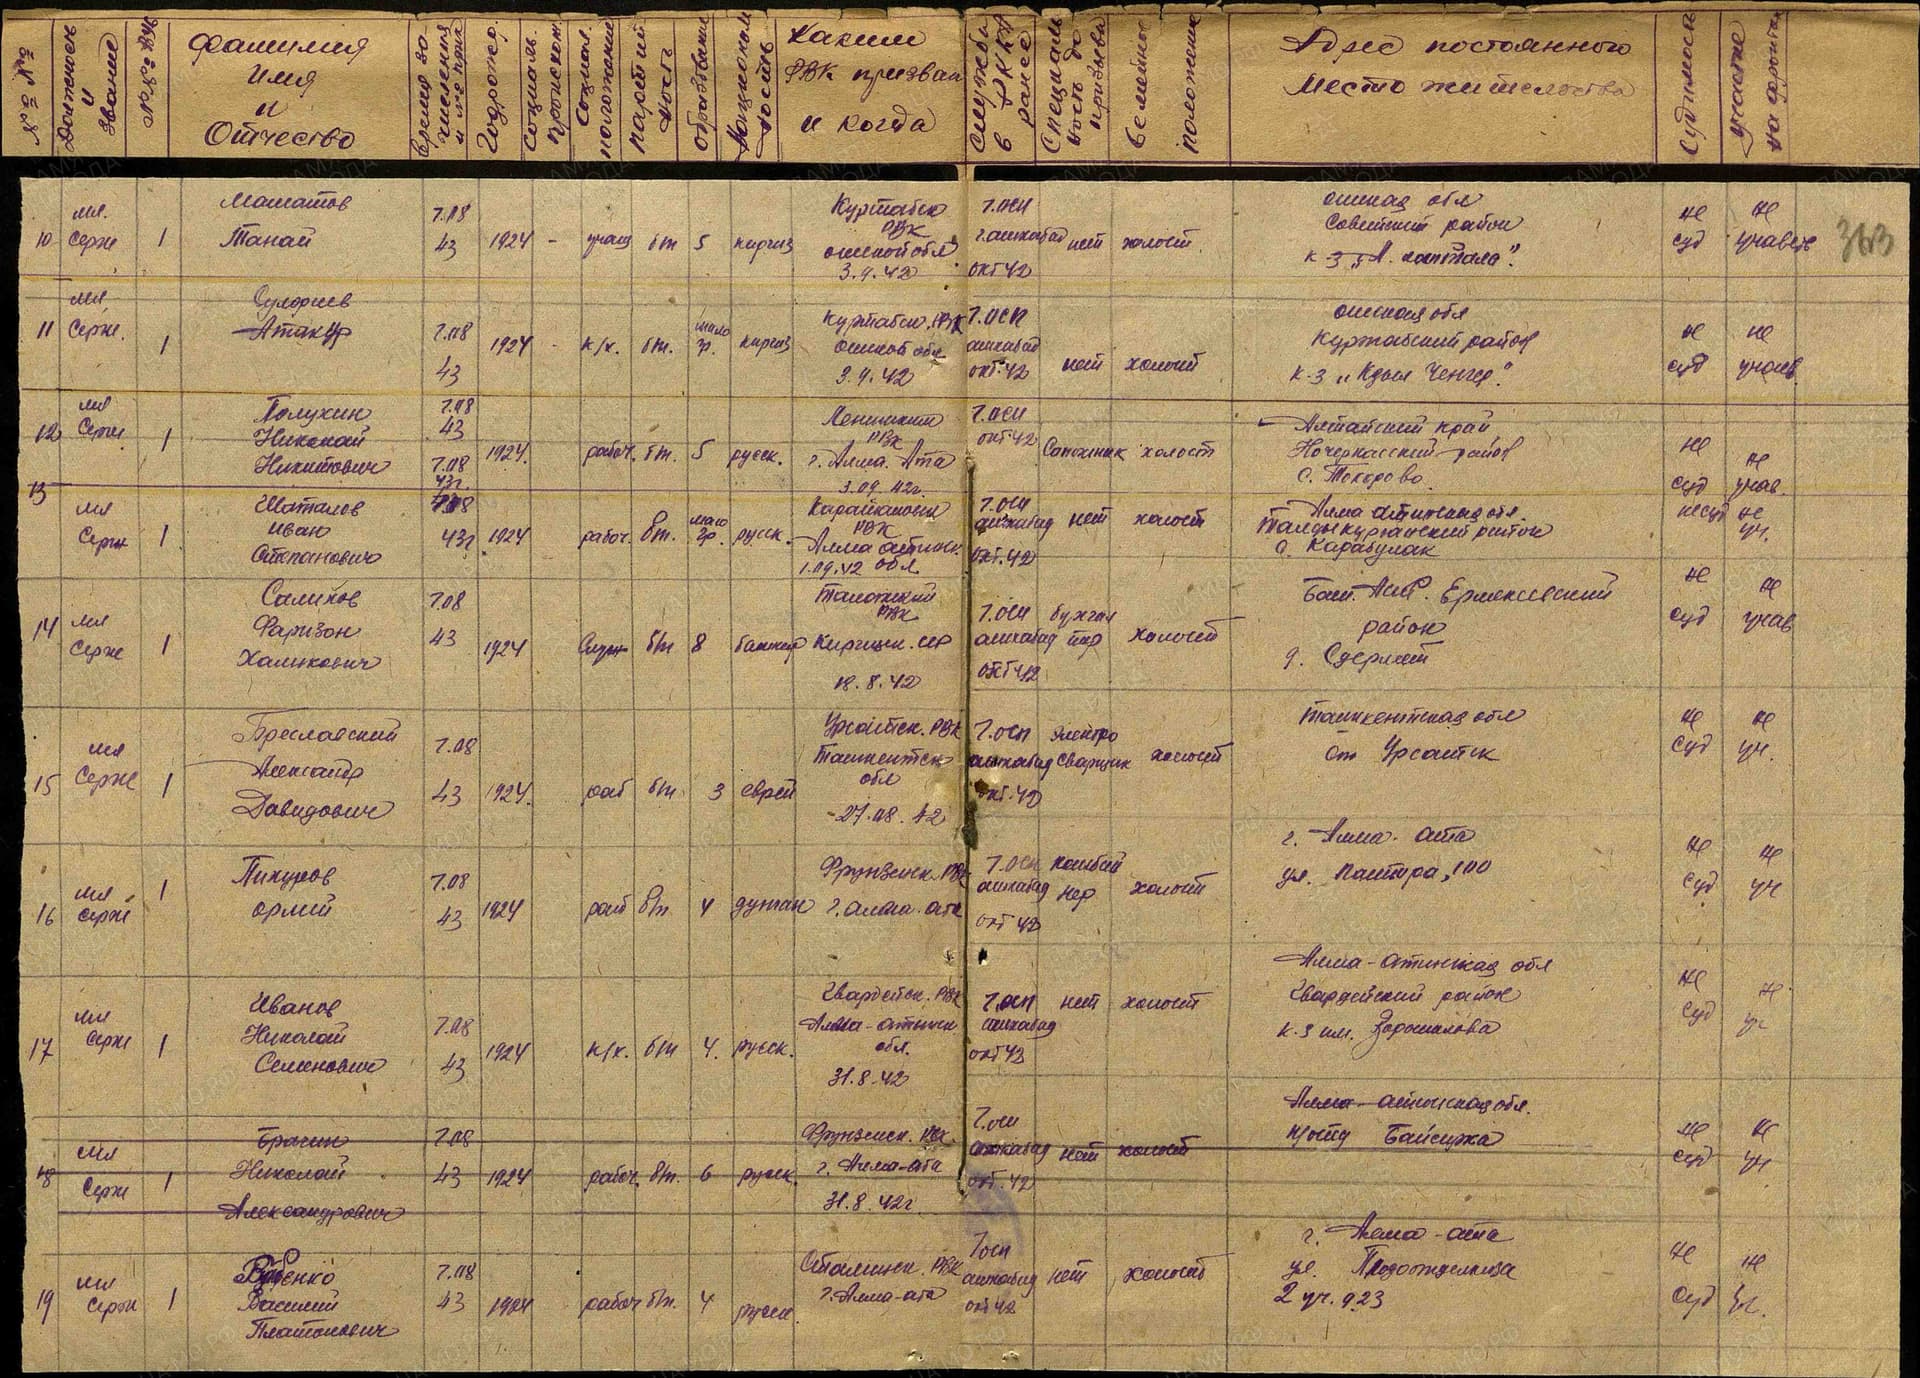 №№ №№
Должность
и
звание
Фамилия
Имя
и
Отчество
Время за-
числения
Год рожд.
Социальн.
происхож.
Социал.
положение
Партий
ность
образование
Национал
ность
Каким
РВК призван
и когда
Служба
в РККА
ранее
Специаль
ность до
призыва
Семейное
положение
Адрес постоянного
место жительства
Судимость
участие
на фронтах
363
10
мл.
серж
1
Маматов
Танай
7.08
43
1924 -
учащ
б/п
5
киргиз
Куршабск
РВК
ошской обл
3.9.42
7.осп
г.ашхабад
окт 42
нет
холост
ошская обл
Советский район
к-з
не
суд
не
участв
11
мл
серж.
1
Атакур
7.08
43
1924 -
к/х.
б/п.
мало
гр.
киргиз
Куршабск. РВК
ошской обл
3.9.42
7.осп
ашхабад
окт.42
нет
холост
ошская обл
Куршабский район
к-з
не
суд
не
участв.
12
мл
серж.
1
Полухин
Николай
Никитович
7.08
43
1924.
рабоч.
б/п.
5
русск.
Ленинский
РВК
г. Алма. Ата
3.09.42г.
7.осп
окт 42
Сапожник
холост
Алтайский край
район
с. Токорово.
не
суд
не
учав.
13
мл
серж
1
7.08
43г.
Шаталов
иван
Степанович
7.08
43г
1924
рабоч.
б/п.
мало
гр.
русск.
РВК
Алма атинс.
1.09.42 обл
7.осп
ашхабад
окт.42
нет
холост
Алма атинская обл.
Талды курганский район
с. Карабулак
несуд
не
уч.
14
мл
серж
1
Салихов
Фаризон
Халикович
7.08
43
1924
служ
б/п
8
башкир
РВК
Киргизк. сср
18.8.42
7.осп
ашхабад
окт 42
бухгал
тер
холост
Баш. АССР. Ермекеевский
район
д.
не
суд
не
учав
15
мл
серж
1
Бреславский
Александр
Давидович
7.08
43
1924.
раб
б/п.
3
еврей
Урсатск. РВК
Ташкентск
обл
-27.08.42
7.осп
ашхабад
окт.42
электро
сварщик
холост
Ташкентская обл
ст Урсатск
не
суд
не
уч.
16
мл
серж
1
Пикуров
7.08
43
1924
раб
б/п.
4
дунган
Фрунзенск. РВК
г. алма-ата
7.осп
ашхабад
окт 42
комбай
нер
холост
г. Алма-ата
ул. 100
не
суд
не
уч
17
мл
серж
1
Иванов
Николай
Семенович
7.08
43
1924
к/х.
б/п
4.
русск.
Гвардейск. РВК
Алма-атинск
обл.
31.8.42
7.осп
ашхабад
окт 43
нет
холост
Алма-атинская обл
Гвардейский район
к-з им. Ворошилова
не
суд
не
уч
18
мл
серж
1
Николай
Александрович
7.08
43
1924
рабоч.
б/п.
6
русск.
Фрунзенск. РВК.
г. Алма-ата
31.8.42г
7.осп
ашхабад
окт.42
нет
холост
Алма-атинская обл.
не
суд
не
уч
19
мл
серж
1
Василий
Платонович
7.08
43
1924
рабоч
б/п.
4
русск.
Сталинск. РВК
г. Алма-ата
7осп
ашхабад
окт 42
нет
холост
г. Алма-ата
ул.
2 уч. д.23
не
суд
не
уч.